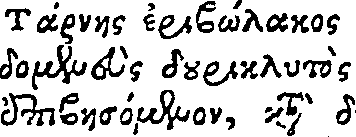 Τάρνης ἐριβώλακος
δομενεὺς δουρικλυτὸς
ἐπιβησόμενον, κατὰ δ